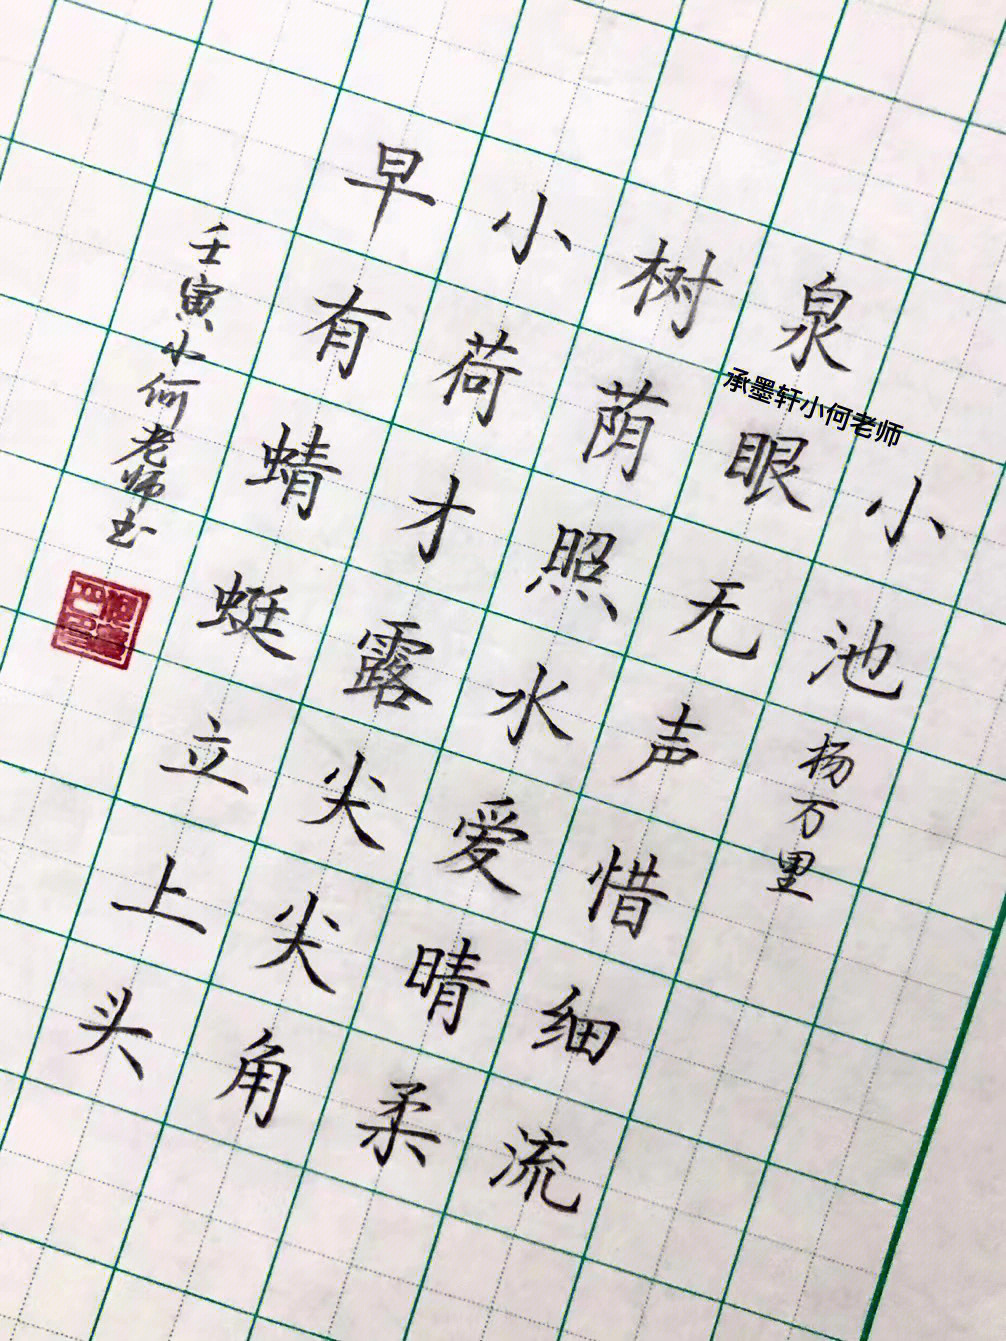 小池
杨万里
泉眼无声惜细流
树荫照水爱晴柔
小荷才露尖尖角
早有蜻蜓立上头
壬寅小何老师书
承墨轩小何老师